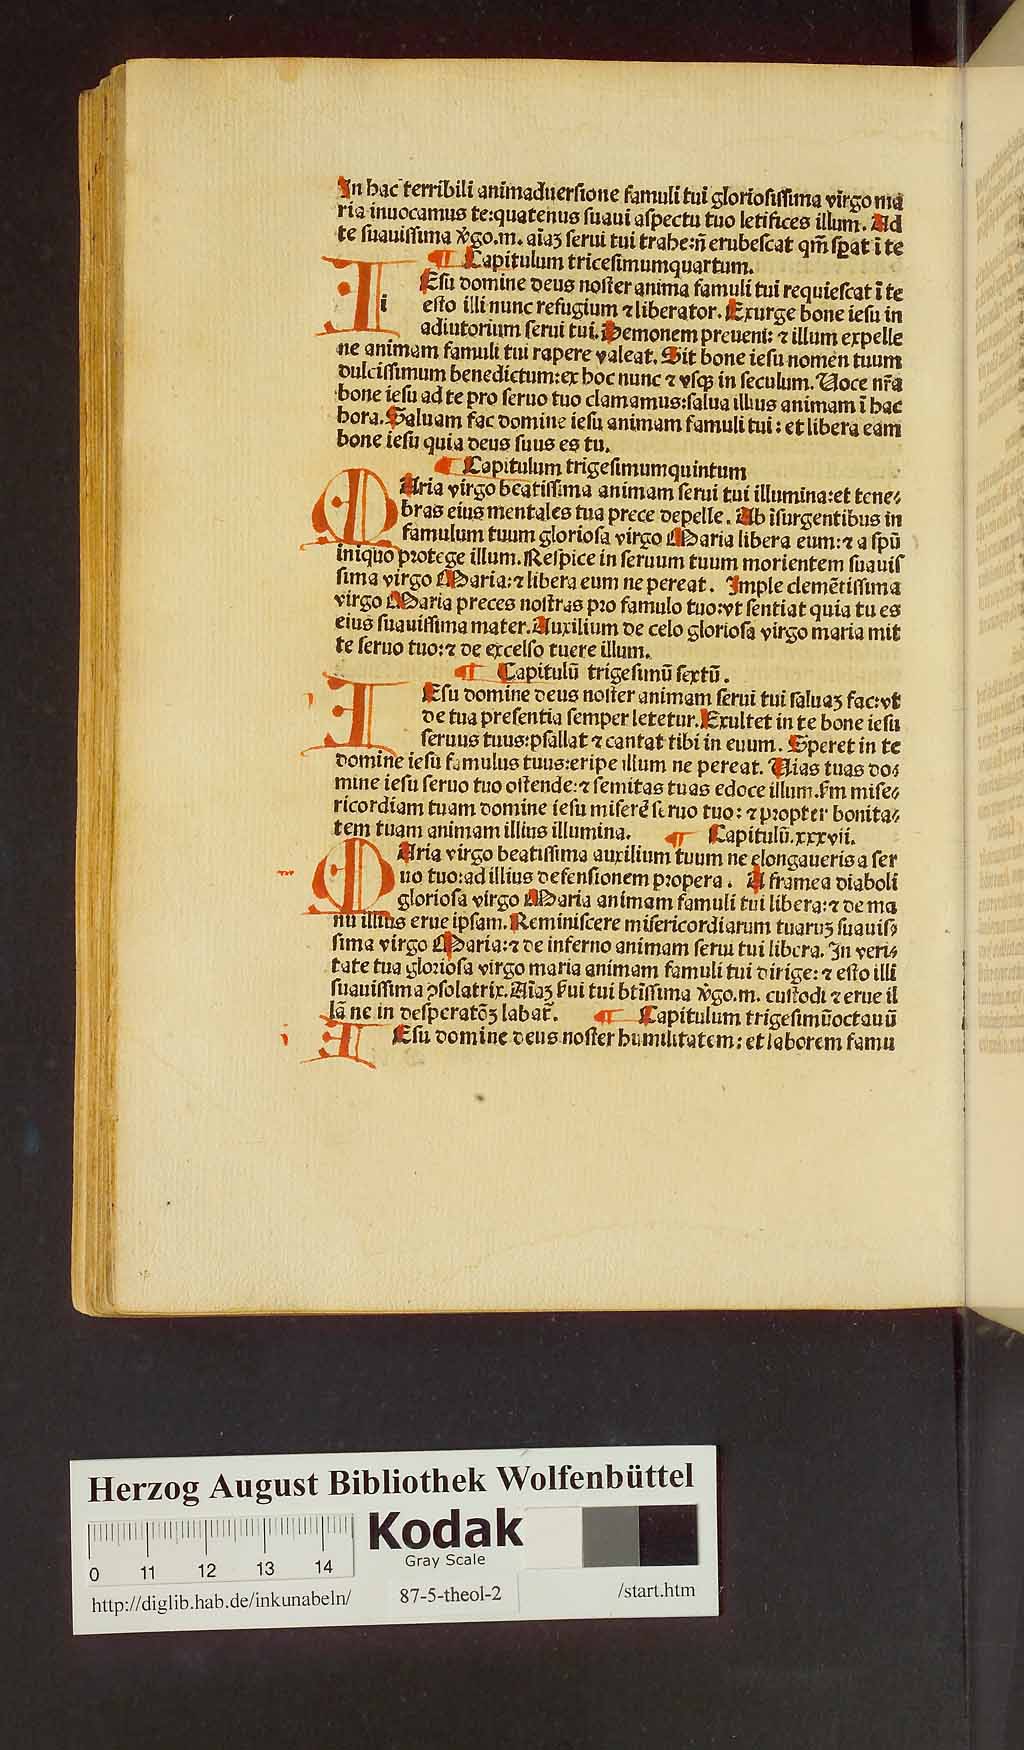 In hac terribili animaduersione famuli tui gloriosissima virgo ma
ria inuocamus te:quatenus suaui aspectu tuo letifices illum. Ad
te suauissima v̓go.m. aĩaʒ serui tui trahe:n̄ erubescat qm̄ sꝑat ĩ te
¶ Capitulum tricesimumquartum.
IEsu domine deus noster anima famuli tui requiescat ĩ te
esto illi nunc refugium ⁊ liberator. Exurge bone iesu in
adiutorium serui tui. Demonem preueni: ⁊ illum expelle
ne animam famuli tui rapere valeat. Sit bone iesu nomen tuum
dulcissimum benedictum:ex hoc nunc ⁊ vsqꝫ in seculum. Uoce nr̄a
bone iesu ad te pro seruo tuo clamamus:salua illius animam ĩ hac
hora. Saluam fac domine iesu animam famuli tui: et libera eam
bone iesu quia deus suus es tu.
¶ Capitulum trigesimumquintum
MAria virgo beatissima animam serui tui illumina:et tene⸗
bras eius mentales tua prece depelle. Ab ĩsurgentibus in
famulum tuum gloriosa virgo Maria libera eum:⁊ a spū
iniquo protege illum. Respice in seruum tuum morientem suauis
sima virgo Maria:⁊ libera eum ne pereat. Imple clemẽtissima
virgo Maria preces nostras pro famulo tuo:vt sentiat quia tu es
eius suauissima mater. Auxilium de celo gloriosa virgo maria mit
te seruo tuo:⁊ de excelso tuere illum.
¶ Capitulū trigesimū sextū.
IEsu domine deus noster animam serui tui saluaʒ fac:vt
de tua presentia semper letetur. Exultet in te bone iesu
seruus tuus:psallat ⁊ cantat tibi in euum. Speret in te
domine iesu famulus tuus:eripe illum ne pereat. Uias tuas do⸗
mine iesu seruo tuo ostende:⁊ semitas tuas edoce illum. Fm mise⸗
ricordiam tuam domine iesu miserē seruo tuo: ⁊ propter bonita⸗
tem tuam animam illius illumina. ¶ Capitulū.xxxvii.
MAria virgo beatissima auxilium tuum ne elongaueris a ser
uo tuo:ad illius defensionem propera. A framea diaboli
gloriosa virgo Maria animam famuli tui libera:⁊ de ma
nu illius erue ipsam. Reminiscere misericordiarum tuarum suauis⸗
sima virgo Maria:⁊ de inferno animam serui tui libera. In veri⸗
tate tua gloriosa virgo maria animam famuli tui dirige: ⁊ esto illi
suauissima ꝯsolatrix. Aĩaʒ ẜui tui btĩssima v̓go.m. custodi ⁊ erue il
lā ne in desperatōʒ labat᷑. ¶ Capitulum trigesimūoctauū
IEsu domine deus noster humilitatem: et laborem famu
Herzog August Bibliothek Wolfenbüttel
Kodak
Gray Scale
0 11 12 13 14
http://diglib.hab.de/inkunabeln/ 87-5-theol-2 /start.htm